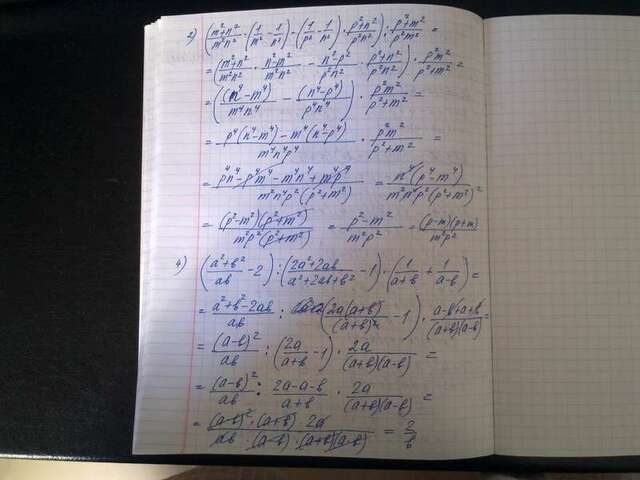 2) ((m²+n²)/(m²n²) · (1/m² − 1/n²) − (1/p² − 1/n²) · (p²+n²)/(p²n²)) : (p²+m²)/(p²m²) =
= ((m²+n²)/(m²n²) · (n²−m²)/(m²n²) − (n²−p²)/(n²p²) · (p²+n²)/(p²n²)) · (p²m²)/(p²+m²) =
= ((n⁴−m⁴)/(m⁴n⁴) − (n⁴−p⁴)/(p⁴n⁴)) · (p²m²)/(p²+m²) =
= (p⁴(n⁴−m⁴) − m⁴(n⁴−p⁴))/(m⁴n⁴p⁴) · (p²m²)/(p²+m²) =
= (p⁴n⁴ − p⁴m⁴ − m⁴n⁴ + m⁴p⁴)/(m²n⁴p²(p²+m²)) = (n⁴(p⁴−m⁴))/(m²n⁴p²(p²+m²)) =
= ((p²−m²)(p²+m²))/(m²p²(p²+m²)) = (p²−m²)/(m²p²) = ((p−m)(p+m))/(m²p²)
4) ((a²+b²)/(ab) − 2) : ((2a²+2ab)/(a²+2ab+b²) − 1) · (1/(a+b) + 1/(a−b)) =
= (a²+b²−2ab)/(ab) : ((2a(a+b))/((a+b)²) − 1) · (a−b+a+b)/((a+b)(a−b)) =
= (a−b)²/(ab) : (2a/(a+b) − 1) · 2a/((a+b)(a−b)) =
= (a−b)²/(ab) : (2a−a−b)/(a+b) · 2a/((a+b)(a−b)) =
= ((a−b)² · (a+b) · 2a)/(ab · (a−b) · (a+b)(a−b)) = 2/b